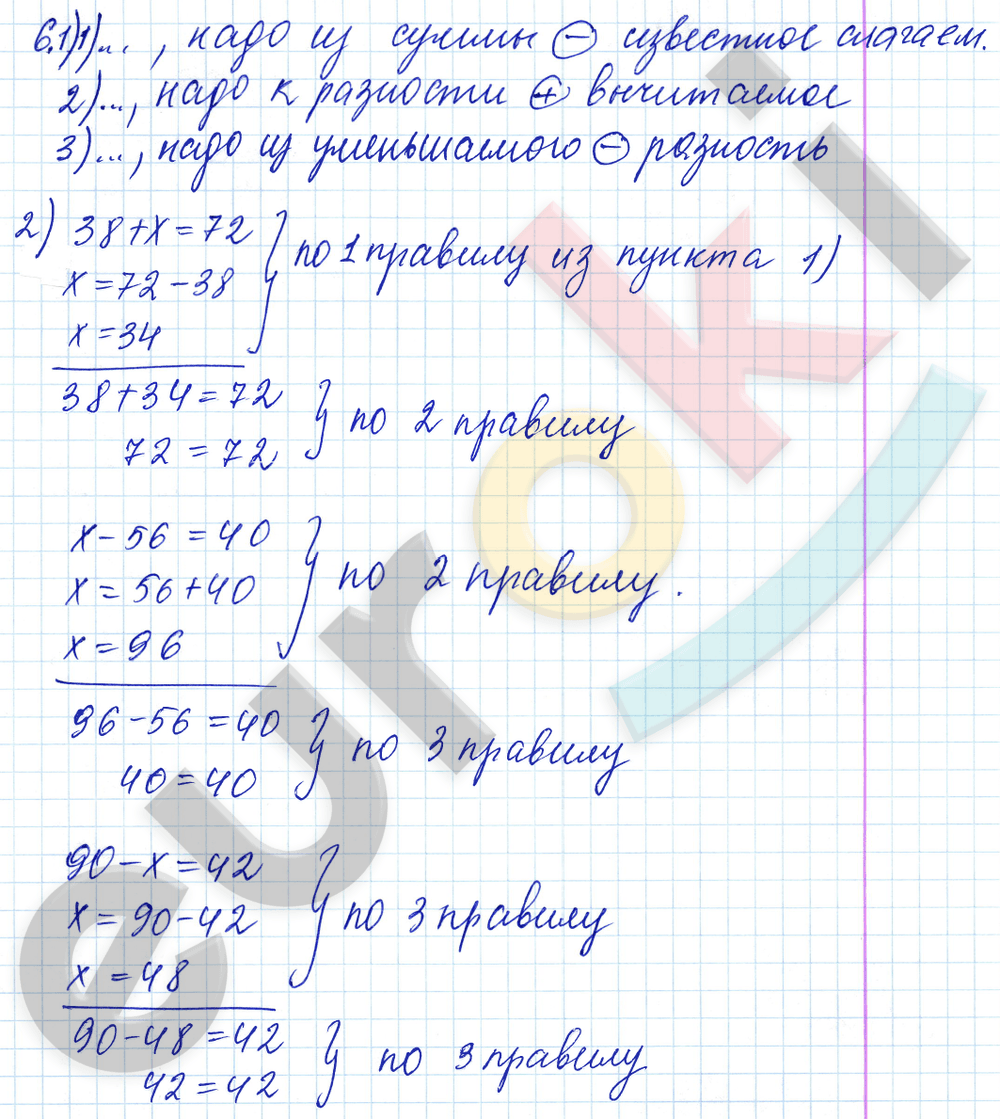 6.1) 1) ..., надо из суммы ⊖ известное слагаем.
2) ..., надо к разности ⊕ вычитаемое
3) ..., надо из уменьшаемого ⊖ разность
2) 38+x=72
x=72-38
x=34
} по 1 правилу из пункта 1)
38+34=72
72=72
} по 2 правилу
x-56=40
x=56+40
x=96
} по 2 правилу.
96-56=40
40=40
} по 3 правилу
90-x=42
x=90-42
x=48
} по 3 правилу
90-48=42
42=42
} по 3 правилу
euroki